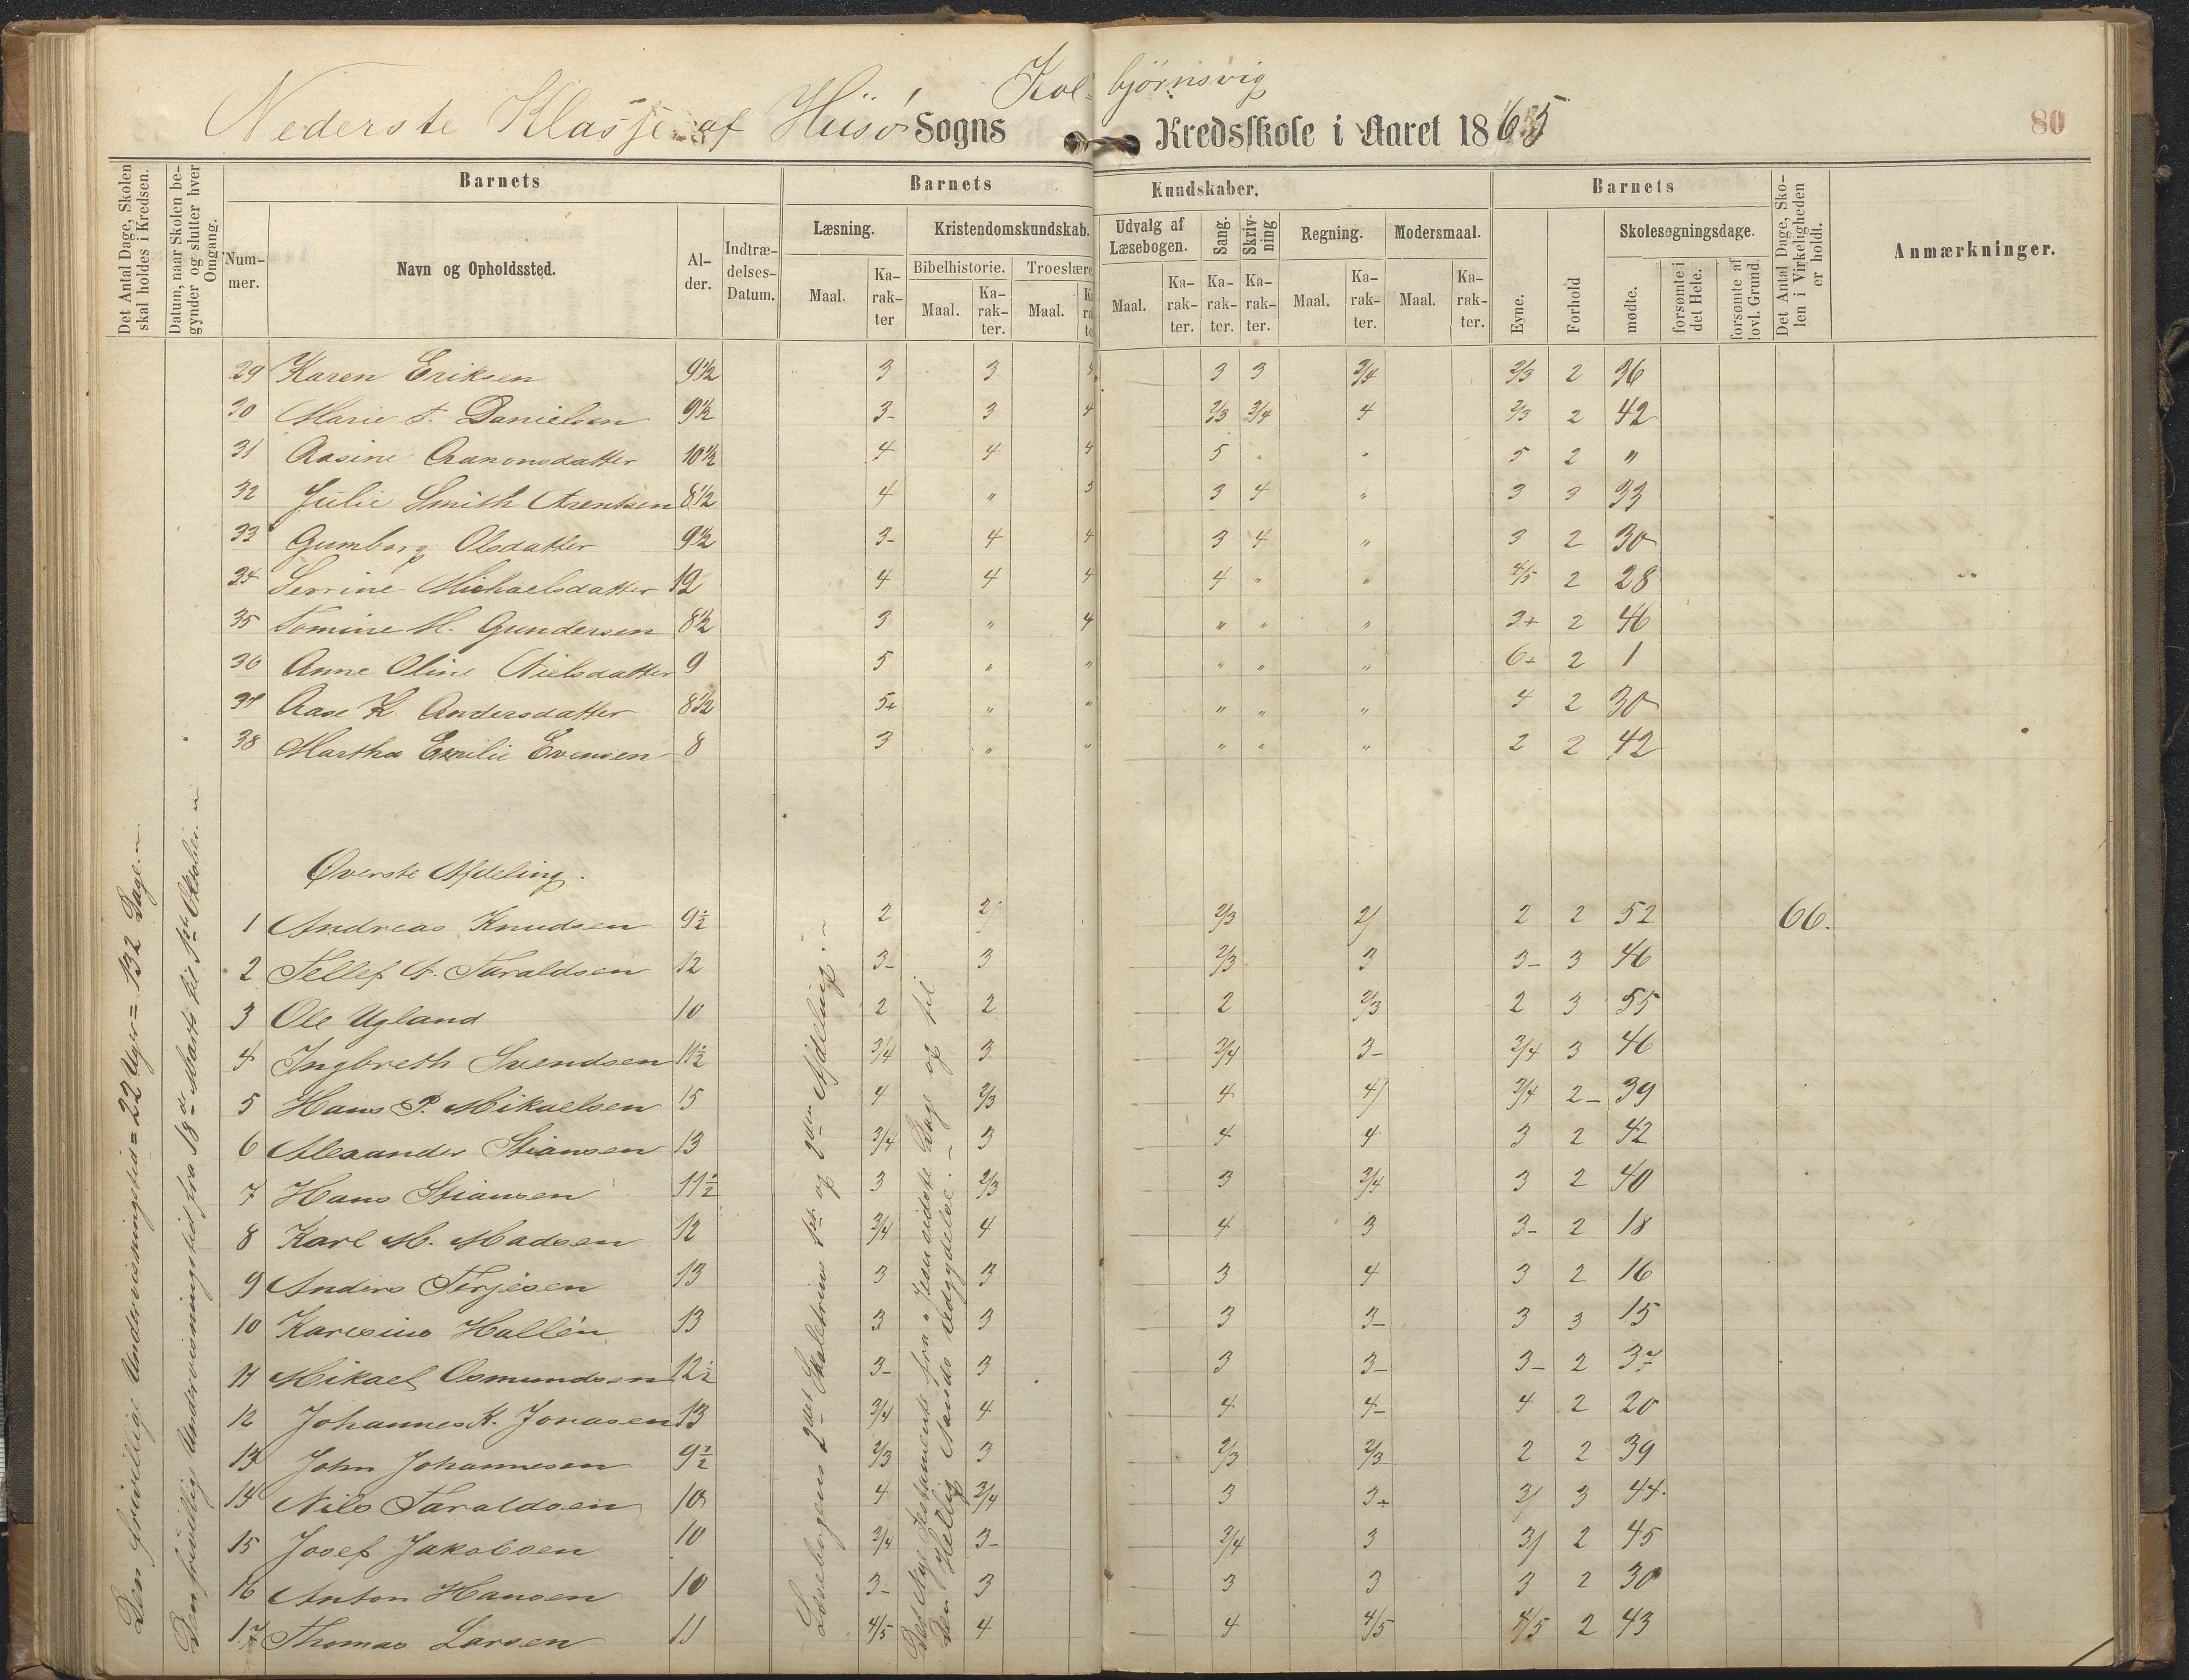 Kolbjørnsvig
Nederste Klasse af Hisø Sogns Kredsskole i Aaret 1865
80
Det Antal Dage, Skolen skal holdes i Kredsen.
Datum, naar Skolen begynder og slutter hver Omgang.
Barnets
Barnets Kundskaber.
Barnets
Nummer.
Navn og Opholdssted.
Alder.
Indtrædelses-Datum.
Læsning.
Kristendomskundskab.
Bibelhistorie.
Troeslære
Udvalg af Læsebogen.
Sang.
Skrivning
Regning.
Modersmaal.
Maal.
Karakter
Evne.
Forhold
Skolesøgningsdage.
mødte.
forsømte i det Hele.
forsømte af lovl. Grund.
Det Antal Dage, Skolen i Virkeligheden er holdt.
Anmærkninger.
29 Karen Eriksen 9½ 3 3 3 3 3 3/4 2/3 2 36
30 Marie A. Danielsen 9½ 3- 3 4 2/3 3/4 4 2/3 2 42
31 Aasine Aanonsdatter 10½ 4 4 4 5 " " 5 2 "
32 Julie Smith Arentsen 8½ 4 " 5 3 4 " 3 3 33
33 Gumborg Olsdatter 9½ 3- 4 4 3 4 " 3 2 30
34 Serine Michaelsdatter 12 4 4 4 4 " " 4/5 2 28
35 Tomine M. Gundersen 8½ 3 " 4 " " " 3+ 2 46
36 Anne Oline Nielsdatter 9 5 " " " " " 6+ 2 1
37 Aase K. Andersdatter 8½ 5+ " " " " " 4 2 30
38 Martha Emilie Evensen 8 3 " " " " " 2 2 42
Øverste Afdeling.
1 Andreas Knudsen 9½ 2 2/ 2/3 2/ 2 2 52 66.
2 Tellef A. Taraldsen 12 3- 3 2/3 3 3- 3 46
3 Ole Ugland 10 2 2 2 2/3 2 3 55
4 Ingbreth Svendsen 11½ 3/4 3 3/4 3- 3/4 3 46
5 Hans P. Mikaelsen 15 4 2/3 4 4/ 3/4 2- 39
6 Alexander Stiansen 13 3/4 3 4 4 3 2 42
7 Hans Stiansen 11½ 3 2/3 3 3/4 3 2 40
8 Karl M. Madsen 12 3/4 4 4 3 3- 2 18
9 Anders Terjesen 13 3 3 3 4 3 2 16
10 Karesius Hallén 13 3 3 3 3- 3 3 15
11 Mikael Osmundsen 12½ 3- 3 3 3- 3- 2 37
12 Johannes K. Jonasen 13 3/4 4 4 4- 4 2 20
13 John Johannesen 9½ 2/3 3 2/3 2/3 2 2 39
14 Nils Taraldsen 10 4 3/4 3 3+ 3/ 3 44.
15 Josef Jakobsen 10 3/4 3- 3/4 3 3/ 2 45
16 Anton Hansen 10 3- 3 3 3 3 2 30
17 Thomas Larsen 11 4/5 4 4 4/5 4/5 2 43
Den frivillige Undervisningstid = 22 Uger = 132 Dage.
Den frivillige Undervisningstid fra 18de Marts til 1ste Oktober.
Læsebogens 2det Skoletrins 1ste og 2den Afdeling.
Det Nye Testamente fra Jesu sidste Dage og til
Den Hellig Aands Udgydelse.